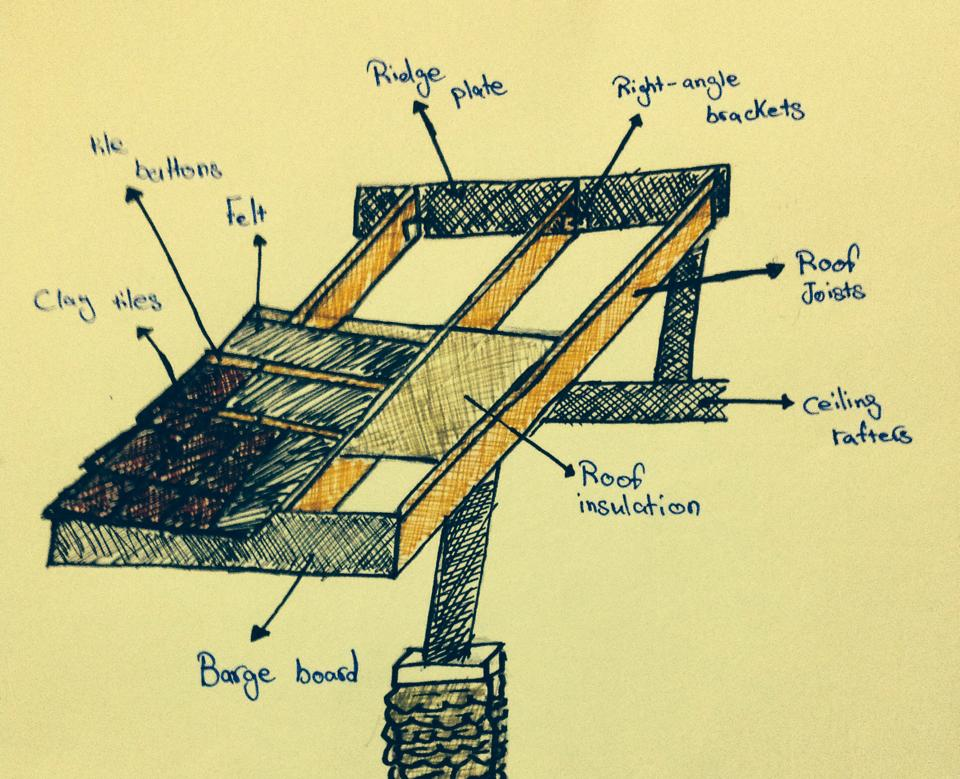 Ridge
plate
Right-angle
brackets
tile
battons
Felt
Clay tiles
Roof
Joists
Ceiling
rafters
Roof
insulation
Barge board